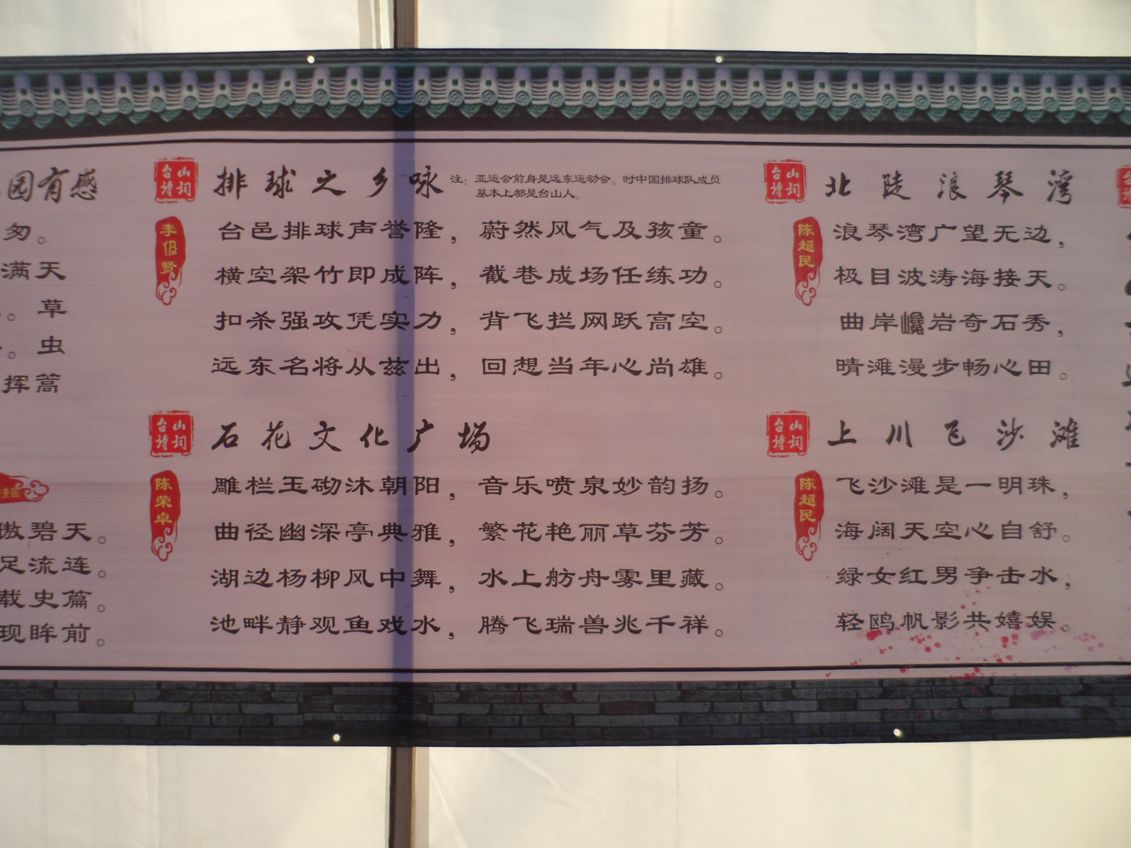 园有感
匆。
满天
。草
。虫
挥篙
傲碧天。
足流连。
载史篇。
现眸前。
台山诗词
排球之乡咏
注：亚运会前身是远东运动会。时中国排球队成员
基本上都是台山人。
李伋贤
台邑排球声誉隆，蔚然风气及孩童。
横空架竹即成阵，截巷成场任练功。
扣杀强攻凭实力，背飞拦网跃高空。
远东名将从兹出，回想当年心尚雄。
台山诗词
石花文化广场
陈荣卓
雕栏玉砌沐朝阳，音乐喷泉妙韵扬。
曲径幽深亭典雅，繁花艳丽草芬芳。
湖边杨柳风中舞，水上舫舟雾里藏。
池畔静观鱼戏水，腾飞瑞兽兆千祥。
台山诗词
北陡浪琴湾
陈超民
浪琴湾广望无边，
极目波涛海接天。
曲岸巉岩奇石秀，
晴滩漫步畅心田。
台山诗词
上川飞沙滩
陈超民
飞沙滩是一明珠，
海阔天空心自舒。
绿女红男争击水，
轻鸥帆影共嬉娱。